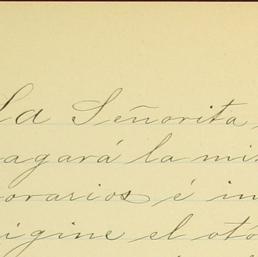 La Señorita,
agará la mi
orarios é in
igine el oto